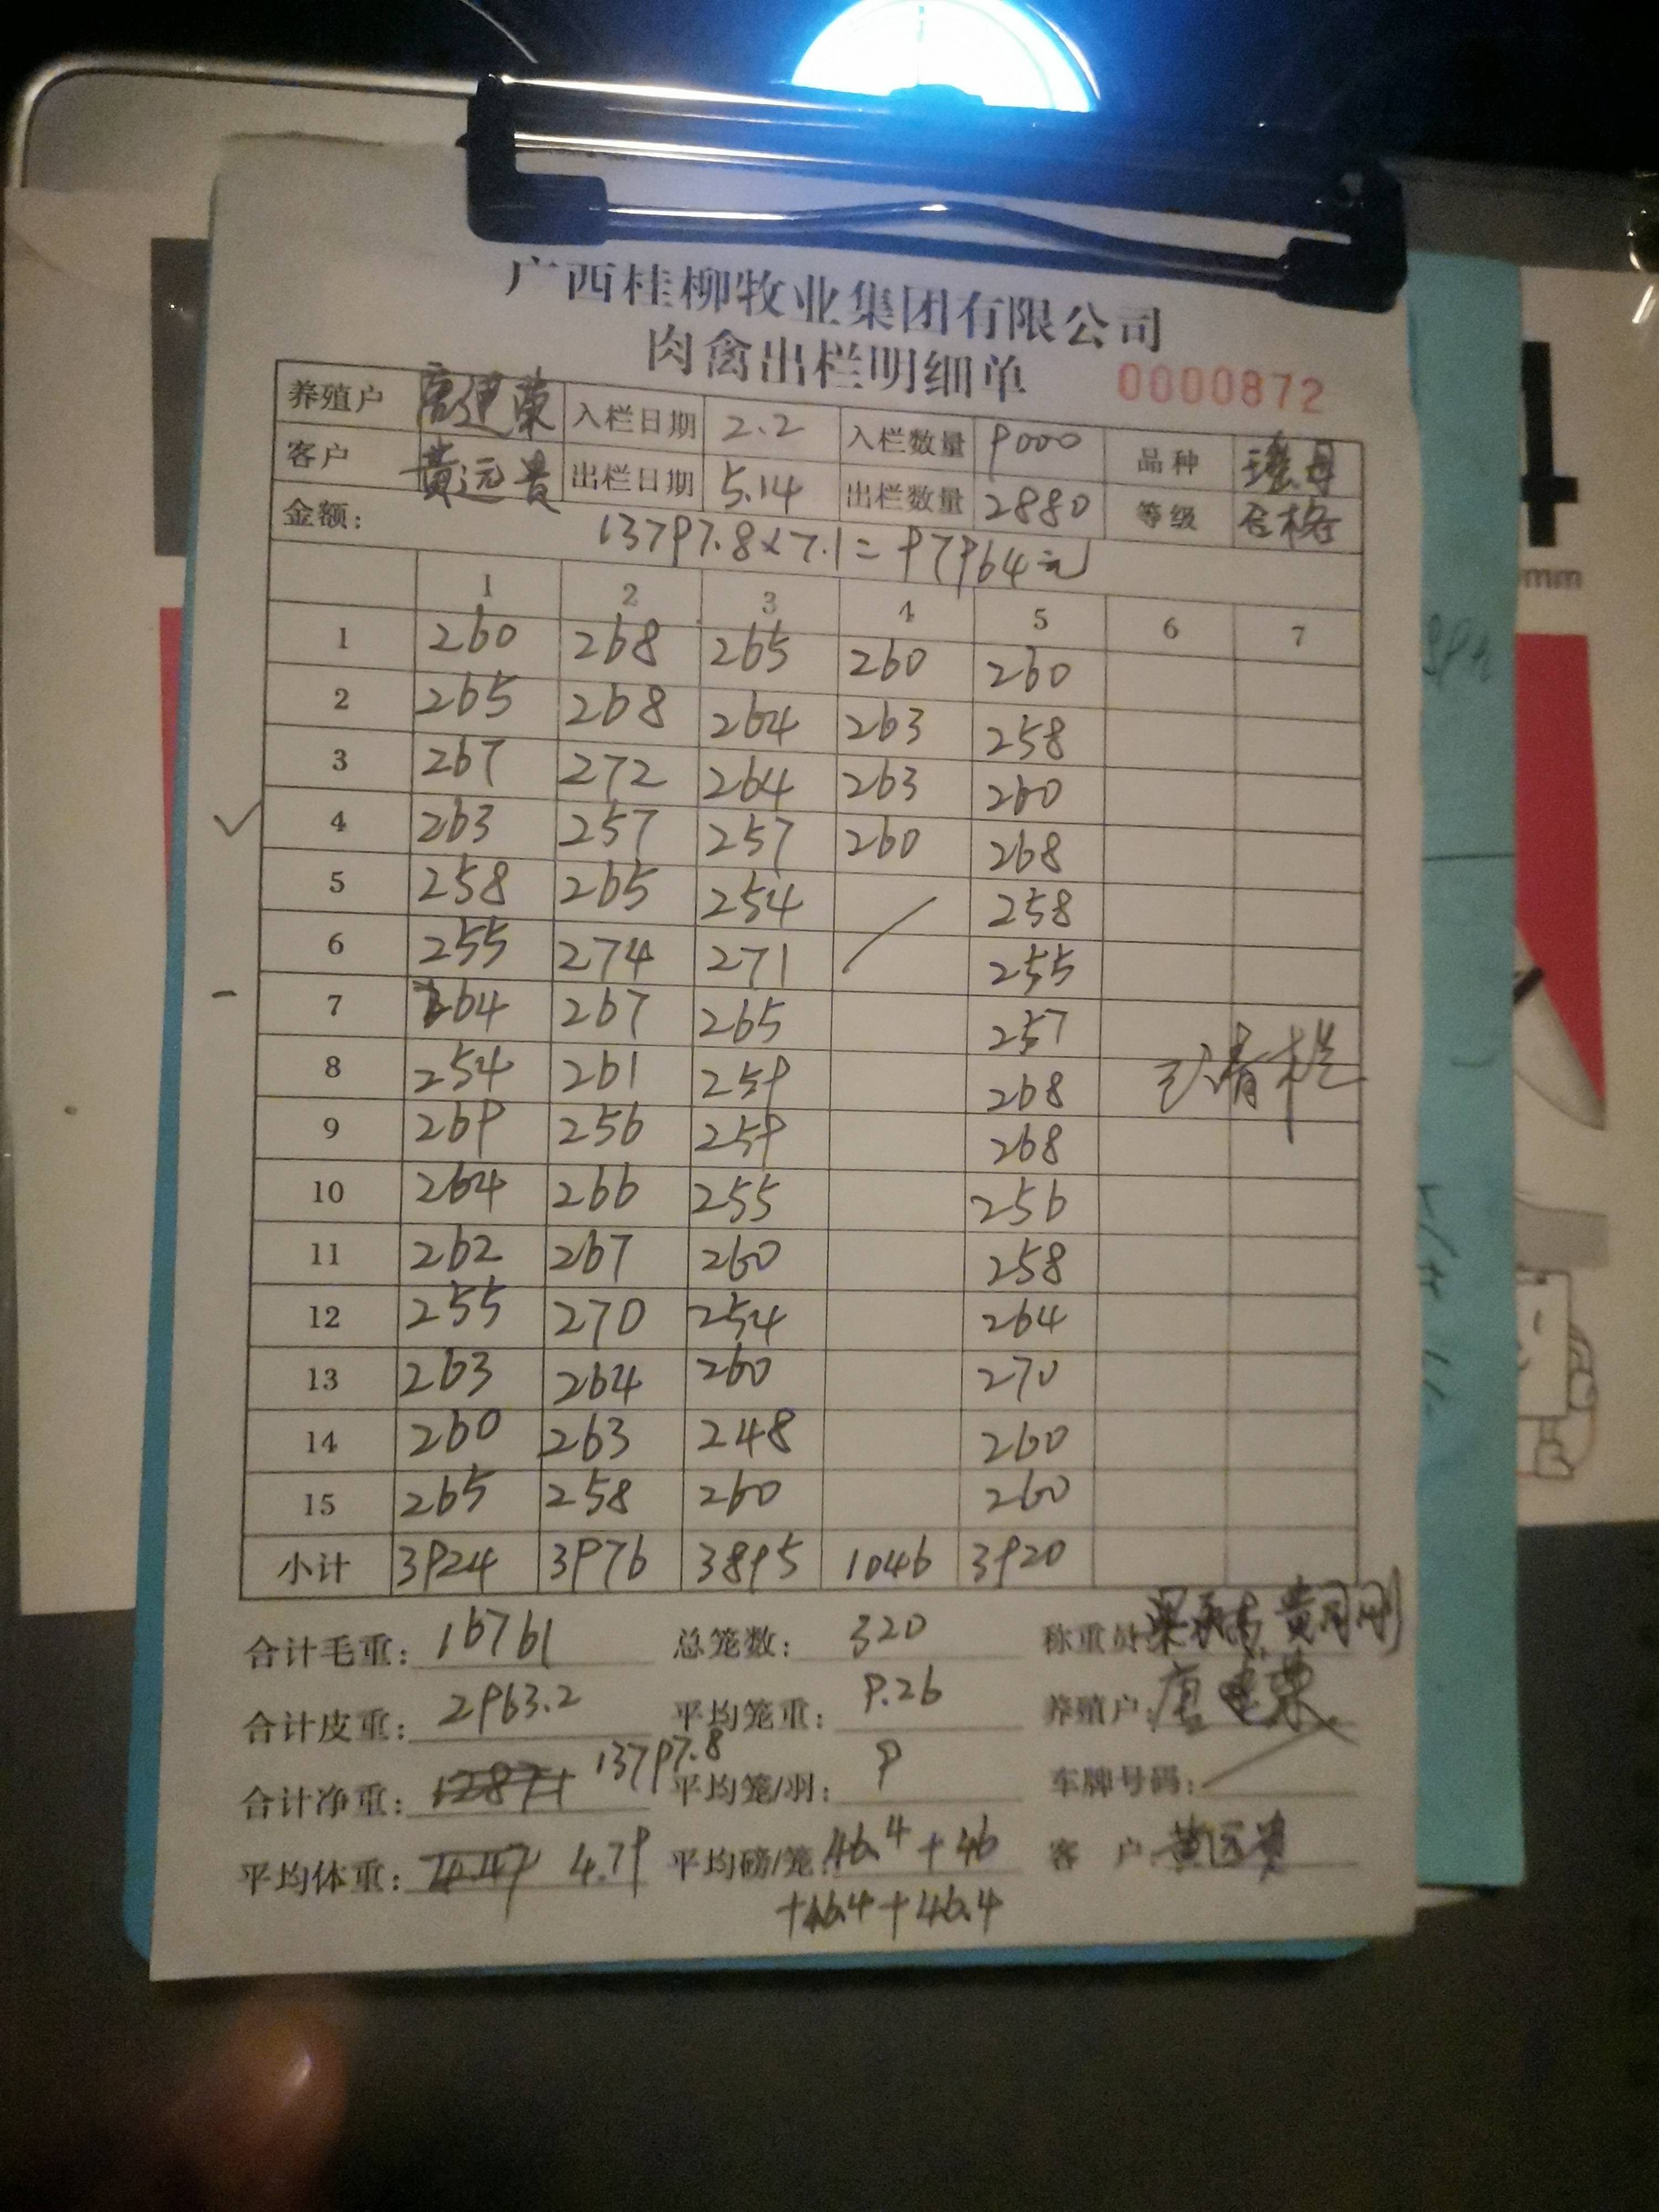 广西桂柳牧业集团有限公司
肉禽出栏明细单 0000872
养殖户 唐建荣 入栏日期 2.2 入栏数量 9000 品种 瑶母
客户 黄远贵 出栏日期 5.14 出栏数量 2880 等级 合格
金额: 13797.8×7.1=97964元
1 2 3 4 5 6 7
1 260 268 265 260 260
2 265 268 264 263 258
3 267 272 264 263 260
4 263 257 257 260 268
5 258 265 254 258
6 255 274 271 255
7 264 267 265 257
8 254 261 259 268 已清栏
9 269 256 259 268
10 264 266 255 256
11 262 267 260 258
12 255 270 254 264
13 263 264 260 270
14 260 263 248 260
15 265 258 260 260
小计 3924 3976 3895 1046 3920
合计毛重: 16761 总笼数: 320 称重员:
合计皮重: 2963.2 平均笼重: 9.26 养殖户: 唐建荣
合计净重: 13797.8 平均笼/羽: 9 车牌号码:
平均体重: 4.79 平均磅/笼: 46.4+46 客 户: 黄远贵
+46.4+46.4
4
mm